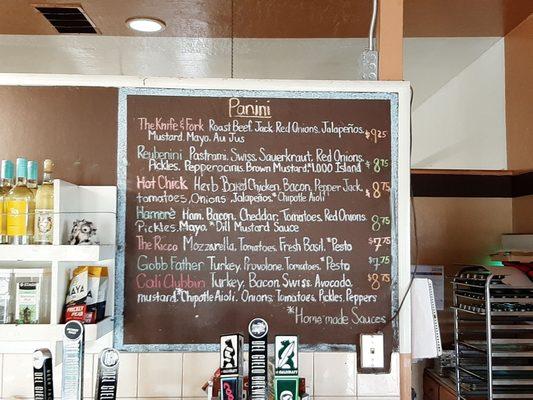 Panini
The Knife & Fork Roast Beef, Jack, Red Onions, Jalapeños, $9.25
Mustard, Mayo, Au Jus
Reubenini Pastrami, Swiss, Sauerkraut, Red Onions, $8.75
Pickles, Pepperocinis, Brown Mustard, *1,000 Island
Hot Chick Herb Baked Chicken, Bacon, Pepper Jack, $8.75
tomatoes, Onions, Jalapeños, *Chipotle Aioli
Hamoré Ham, Bacon, Cheddar, Tomatoes, Red Onions, 8.75
Pickles, Mayo, *Dill Mustard Sauce
The Ricco Mozzarella, Tomatoes, Fresh Basil, *Pesto $7.75
Gobb Father Turkey, Provolone, Tomatoes, *Pesto $7.75
Cali Clubbin Turkey, Bacon, Swiss, Avocado, $8.75
mustard, *Chipotle Aioli, Onions, Tomatoes, Pickles, Peppers
*Homemade Sauces